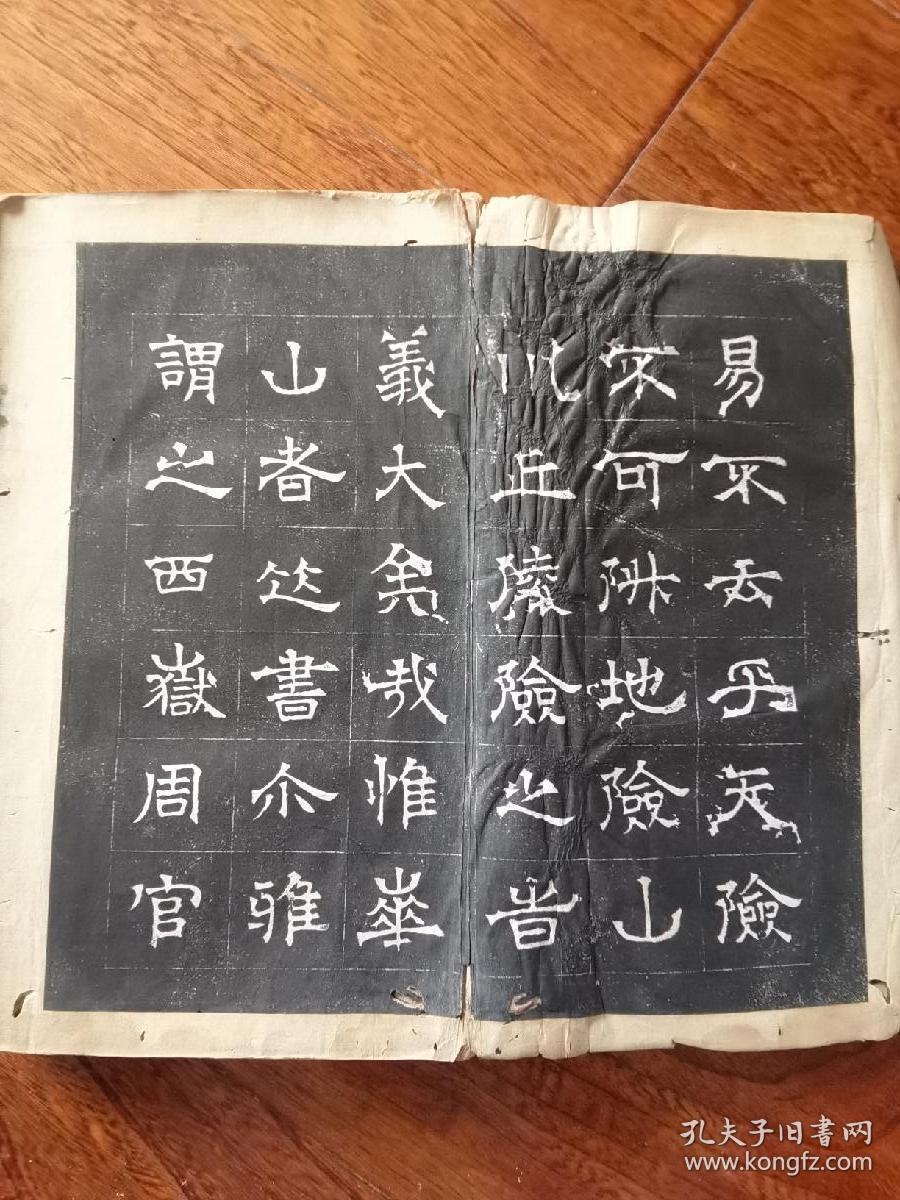 易不云乎天險
不可阩地險山
川丘陵險之旹
義大矣哉惟華
山者書尒雅
謂之西嶽周官
孔夫子旧書网
www.kongfz.com